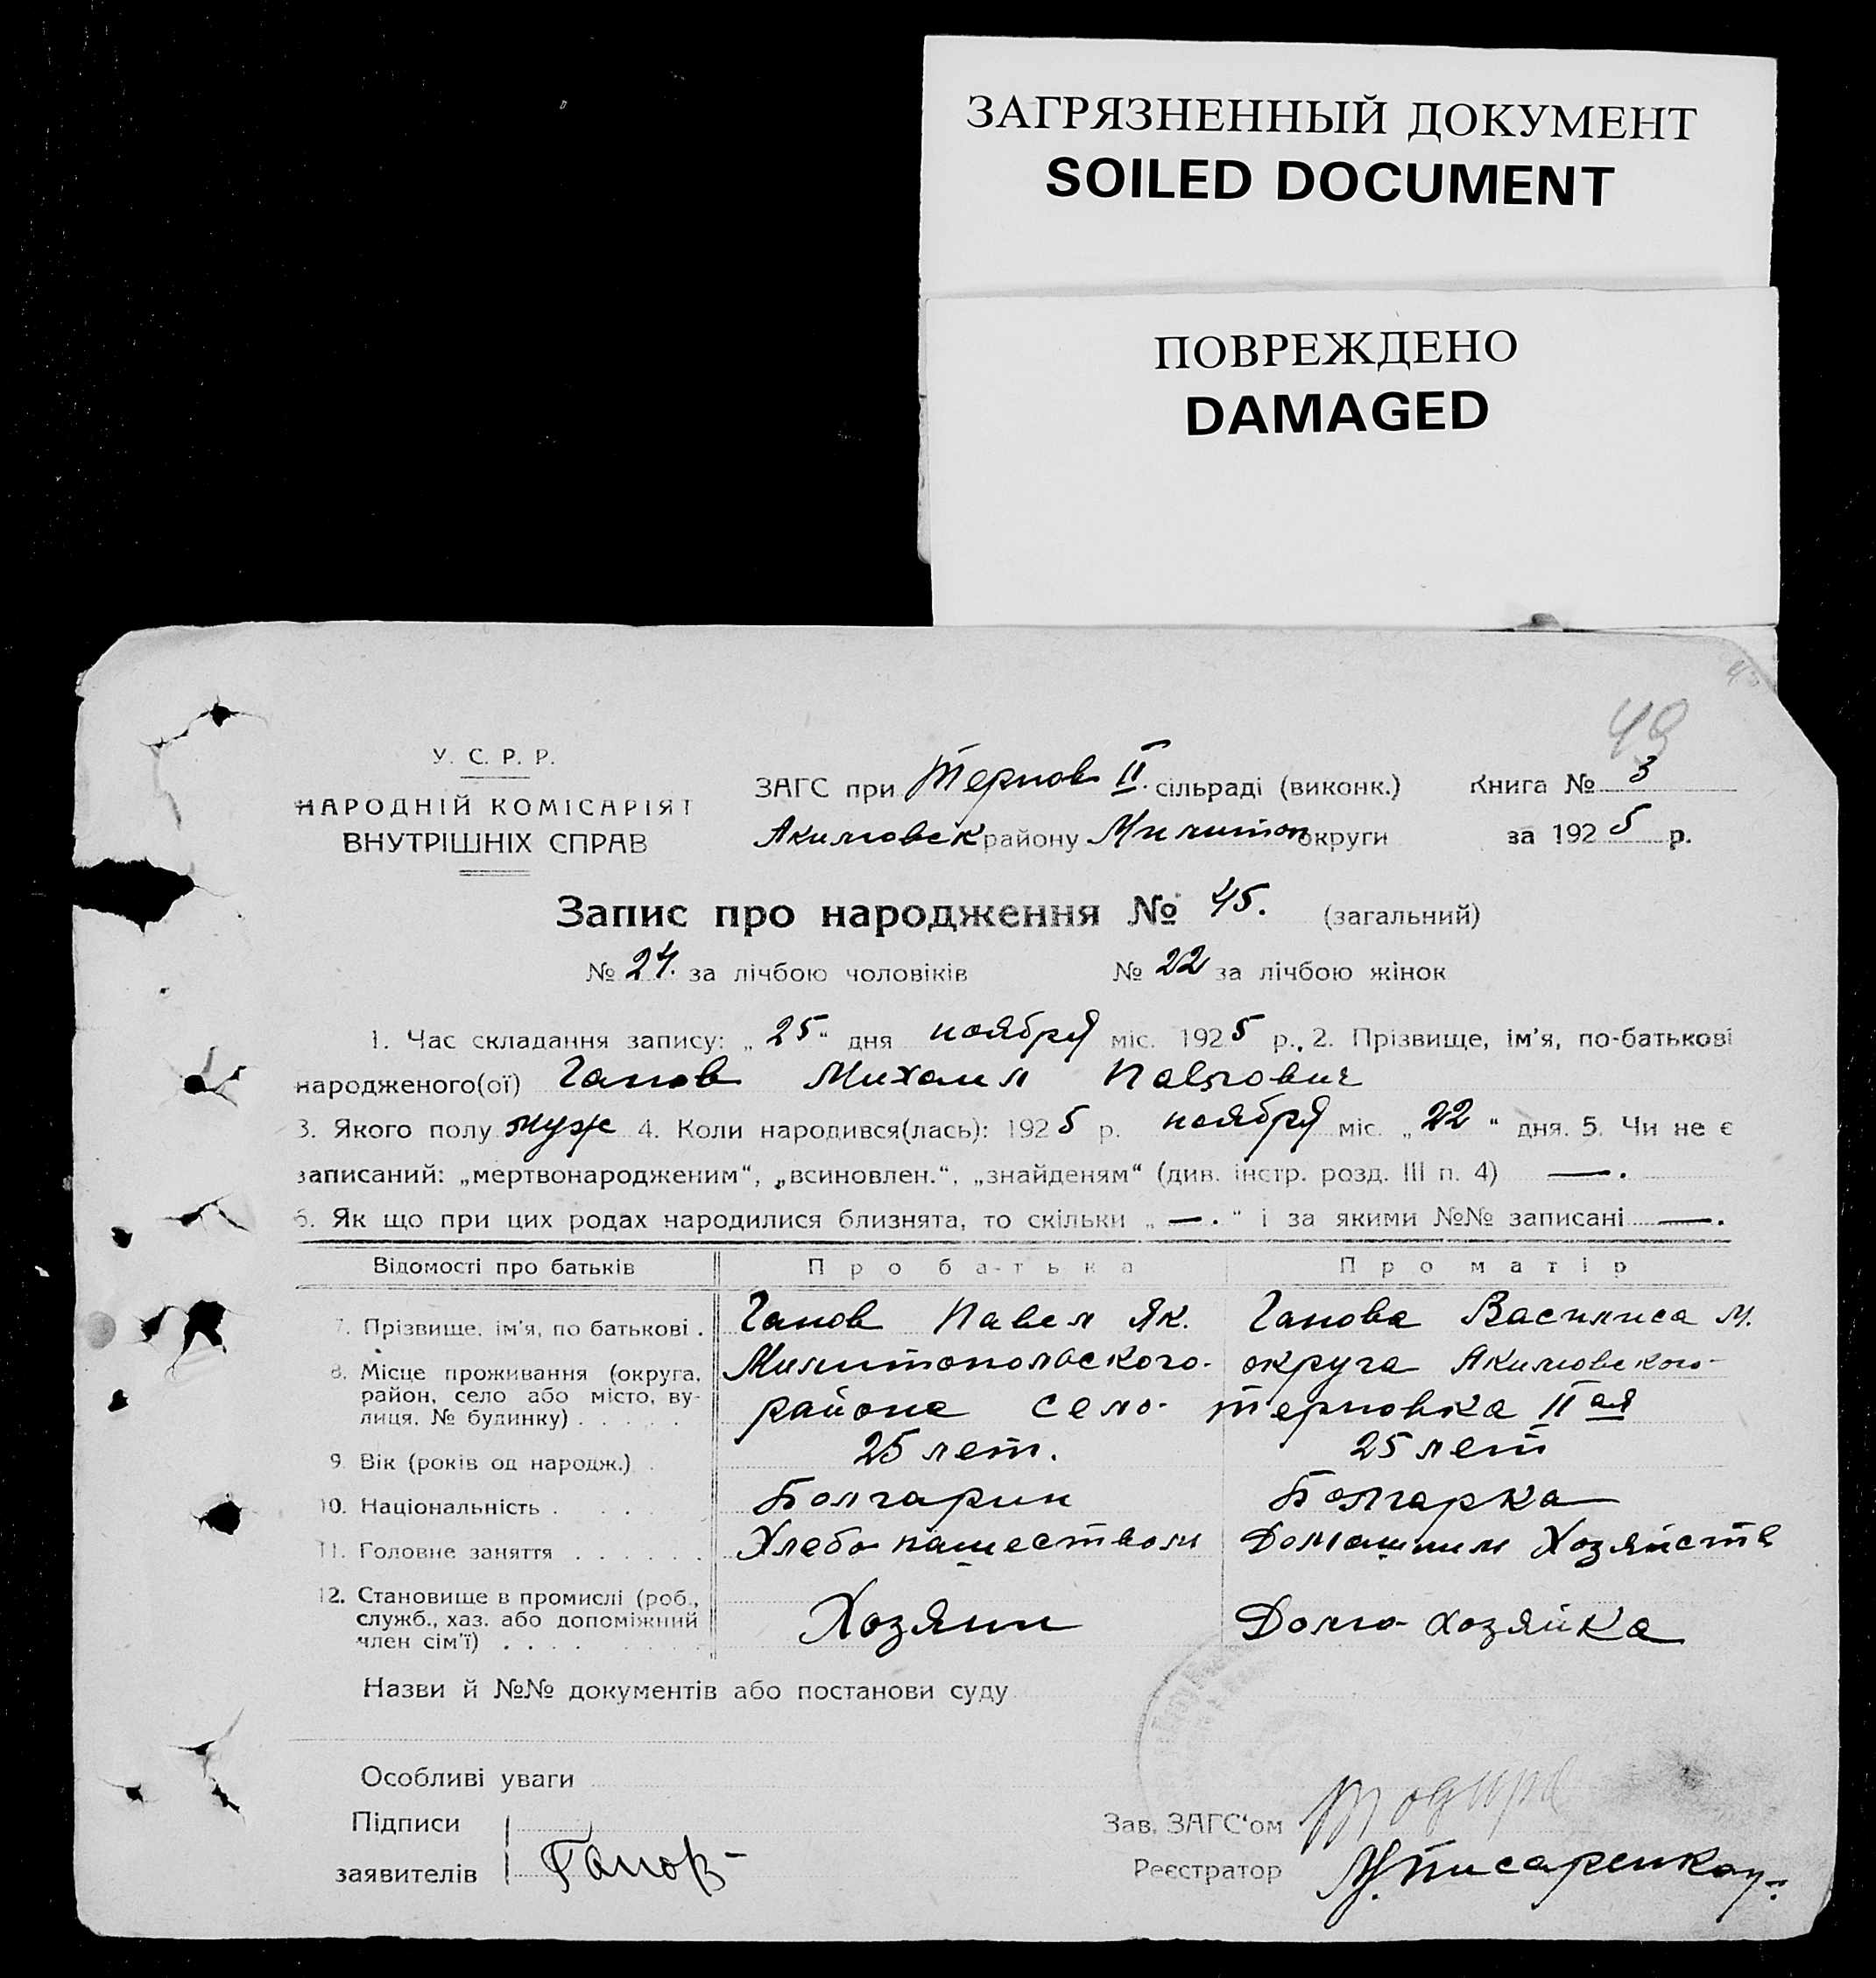 ЗАГРЯЗНЕННЫЙ ДОКУМЕНТ
SOILED DOCUMENT
ПОВРЕЖДЕНО
DAMAGED
49
У. С. Р. Р.
НАРОДНІЙ КОМІСАРІЯТ
ВНУТРІШНІХ СПРАВ
ЗАГС при Тернов II сільраді (виконк.) Книга № 3
Акимовск району Милитоп округи за 1925 р.
Запис про народження № 45. (загальний)
№ 24. за лічбою чоловіків № 22 за лічбою жінок
1. Час складання запису: „25" дня ноября міс. 1925 р., 2. Прізвище, ім'я, по-батькові
народженого(ої) Ганов Михаил Павлович
3. Якого полу муж 4. Коли народився(лась): 1925 р. ноября міс. „22" дня. 5. Чи не є
записаний: „мертвонародженим", „всиновлен.", „знайденям" (див. інстр. розд. III п. 4) —.
6. Як що при цих родах народилися близнята, то скільки „—." і за якими №№ записані —.
Відомості про батьків Про батька Про матір
7. Прізвище, ім'я, по батькові . Ганов Павел Як. Ганова Василиса М.
8. Місце проживання (округа, район, село або місто, вулиця, № будинку) . . . . . Милитопольского округа Акимовского
района село Терновка II ая
9. Вік (років од народж.) . 25 лет. 25 лет
10. Національність . . . . Болгарин Болгарка
11. Головне заняття . . . . . . Хлебопашеством Домашним Хозяйств
12. Становище в промислі (роб., служб., хаз. або допоміжний член сім'ї) . . . . Хозяин Домо-хозяйка
Назви й №№ документів або постанови суду
Особливі уваги
Підписи
заявителів Ганов
Зав. ЗАГС'ом
Реєстратор М. Писаренко